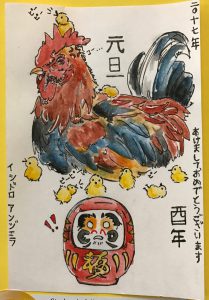 二〇十七年
あけましておめでとうございます
元旦
ピピピ
ピピ
酉年
イシドロ アンジェラ
!!
福